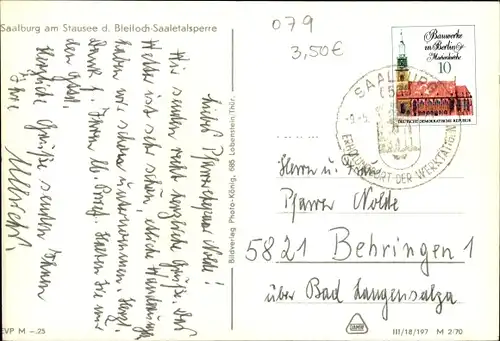 Saalburg am Stausee d. Bleiloch-Saaletalsperre
079
3,50€
Bauwerke
in Berlin
Marienkirche
10
DEUTSCHE DEMOKRATISCHE REPUBLIK
SAALBURG
ERHOLUNGSORT DER WERKTÄTIGEN
Liebes Pfarrehepaar Nolde!
Wir senden recht herzliche Grüße. Das
Wetter ist sehr schön, etliche Wanderungen
haben wir schon unternommen. Herzl.
Dank f. Ihren lb. Brief. Haben Sie nur
den
Herzliche Grüße senden Ihnen
Ihre
Bildverlag Photo-König, 685 Lobenstein/Thür.
Herrn u. Frau
Pfarrer Nolde
5821 Behringen 1
über Bad Langensalza
EVP M -.25
III/18/197 M 2/70